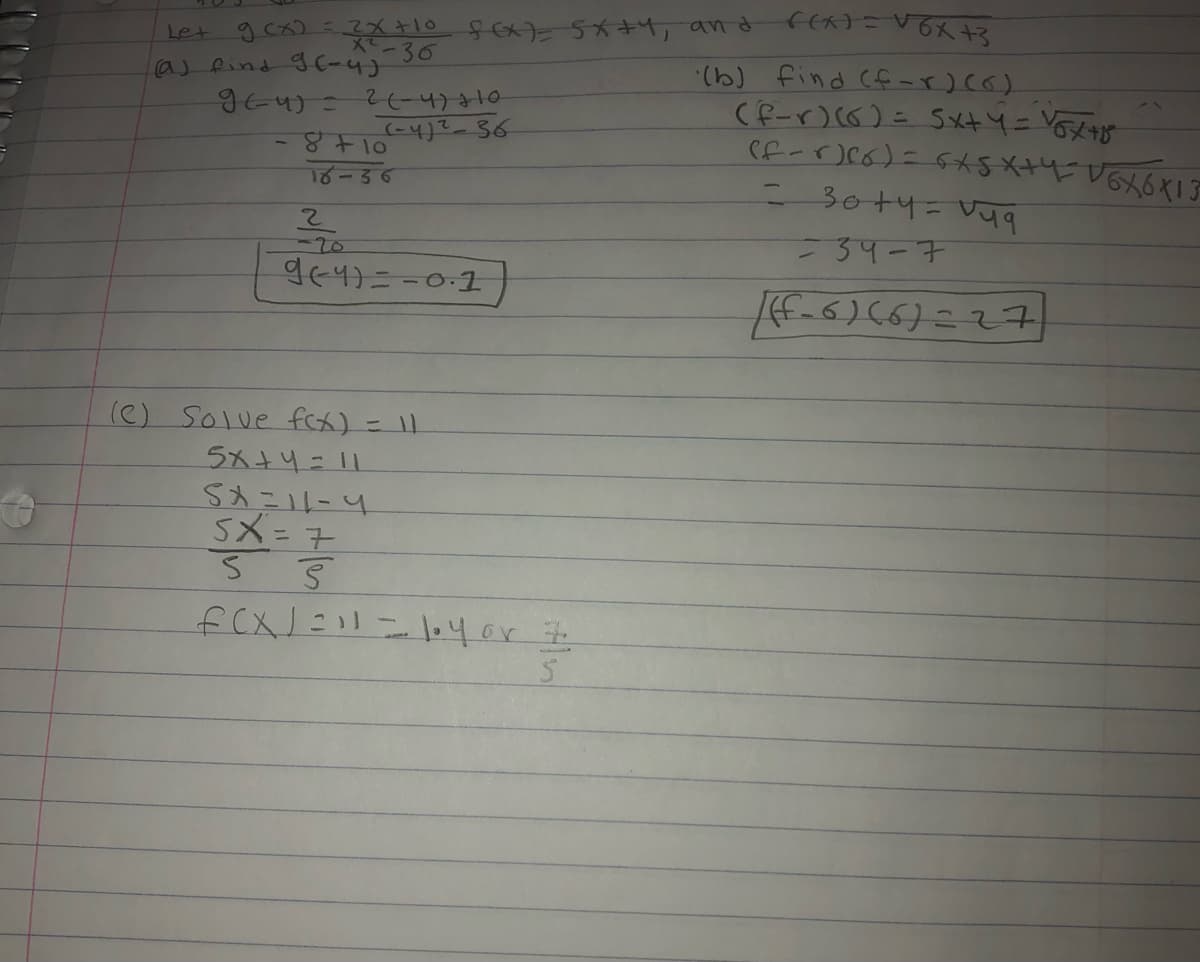 Let g(x) = 2x+10 / x²-36 f(x)= 5x+4, and r(x) = √6x+3
(a) find g(-4)
g(-4) = 2(-4)+10 / (-4)²-36
-8+10 / 16-36
2 / -20
g(-4) = -0.1
(b) find (f-r)(6)
(f-r)(6) = 5x+4 =
(f-r)(6) = 6x5x+4= √6x6x13
= 30+4 = √49
= 34-7
(f-6)(6) = 27
(c) Solve f(x) = 11
5x+4=11
5x=11-4
5x = 7
5 5
f(x)=11 = 1.4 or 7/5